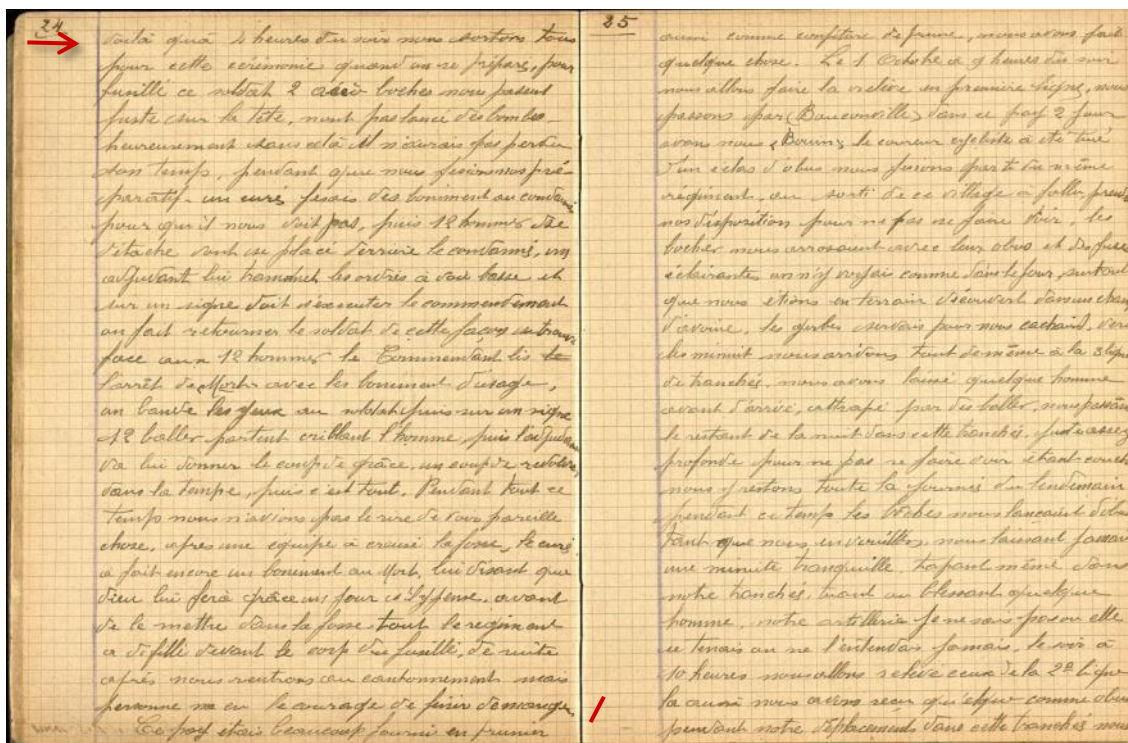 24
voilà qu'à 4 heures du soir nous sortons tous
pour cette cérémonie, quand on se prépare, pour
fusillé ce soldat 2 boches nous passent
juste sur la tête, nont pas lancé des bombes
heureusement sans cela il n'aurais pas perdu
son temps, pendant que nous fesions nos pré-
paratif un curé fesais des boniment au condamné
pour qu'il nous voit pas, puis 12 hommes se
détache vont se placé derrière le condamné, un
adjudant lui transmet les ordres à voie basse et
sur un signe doit éxécuter le commendement
on fait retourner le soldat de cette façon se trouve
face aux 12 hommes le Commendant lis le
l'arrêt de Mort avec les boniment d'usage,
on bande les yeux au soldat puis sur un signe
12 baller partent criblant l'homme, puis l'adjudant
va lui donner le coup de grâce, un coup de revolver
dans la tempe, puis c'est tout. Pendant tout ce
temps nous n'avions pas le rire de voir pareille
chose, apres une equipe à creusé la fosse, le curé
a fait encore un boniment au Mort, lui disant que
dieu lui fera grâce un jour avant
de le mettre dans la fosse tout le regiment
a défillé devant le corp du fusillé, de suite
après nous rentrons au cantonnement mais
personne na eu le courage de finir de manger.
Ce pays étais beaucoup fourni en prunier
25
aussi comme confiture de prune, nous avons fait
quelque chose. Le 1 Octobre a 9 heures du soir
nous allons faire la relève en première ligne, nous
passons par (Bouconville) dans ce pay 2 jour
avant nous, le coureur cycliste a été tué
d'un éclas d'obus nous fusions parti du même
régiment, au sorti de ce village a fallu prendre
nos disposition pour ne pas se faire voir, les
boches nous arrosaient avec leur obus et des fusée
éclairante, on n'y voyais comme dans le four, surtout
que nous étions en terrain découvert dans un champ
d'avoine, les gerbes servais pour nous cachaid, vers
les minuit nous arrivons tout de même à la 3 ligne
de tranchés, nous avons laissé quelque homme
avant d'arrivé, attrapé par des baller, nous passons
le restant de la nuit dans cette tranchés, juste assez
profonde pour ne pas se faire voir étant couché
nous y restons toute la journée du lendemain
pendant ce temps les boches nous lancaient d'obus
tant que nous en vouillons, nous laissant jamais
une minute tranquille, tapant même dans
notre tranchés, tuant ou blessant quelque
homme, notre artillerie je ne sais pas ou elle
ce tenais on ne l'entendas jamais, le soir à
10 heures nous allons relevé ceux de la 2e ligne
la aussi nous avons recu quelque comme obus
pendant notre déplacement dans cette tranchés nous